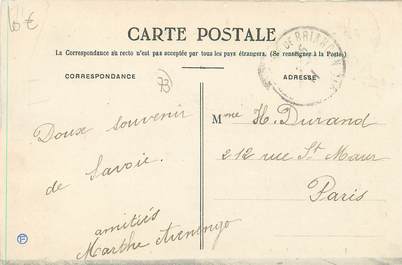 10 €
CARTE POSTALE
La Correspondance au recto n'est pas acceptée par tous les pays étrangers. (Se renseigner à la Poste)
CORRESPONDANCE
73
ADRESSE
Doux souvenir
de Savoie.
amitiés
Marthe
Mme H. Durand
212 rue St Maur
Paris